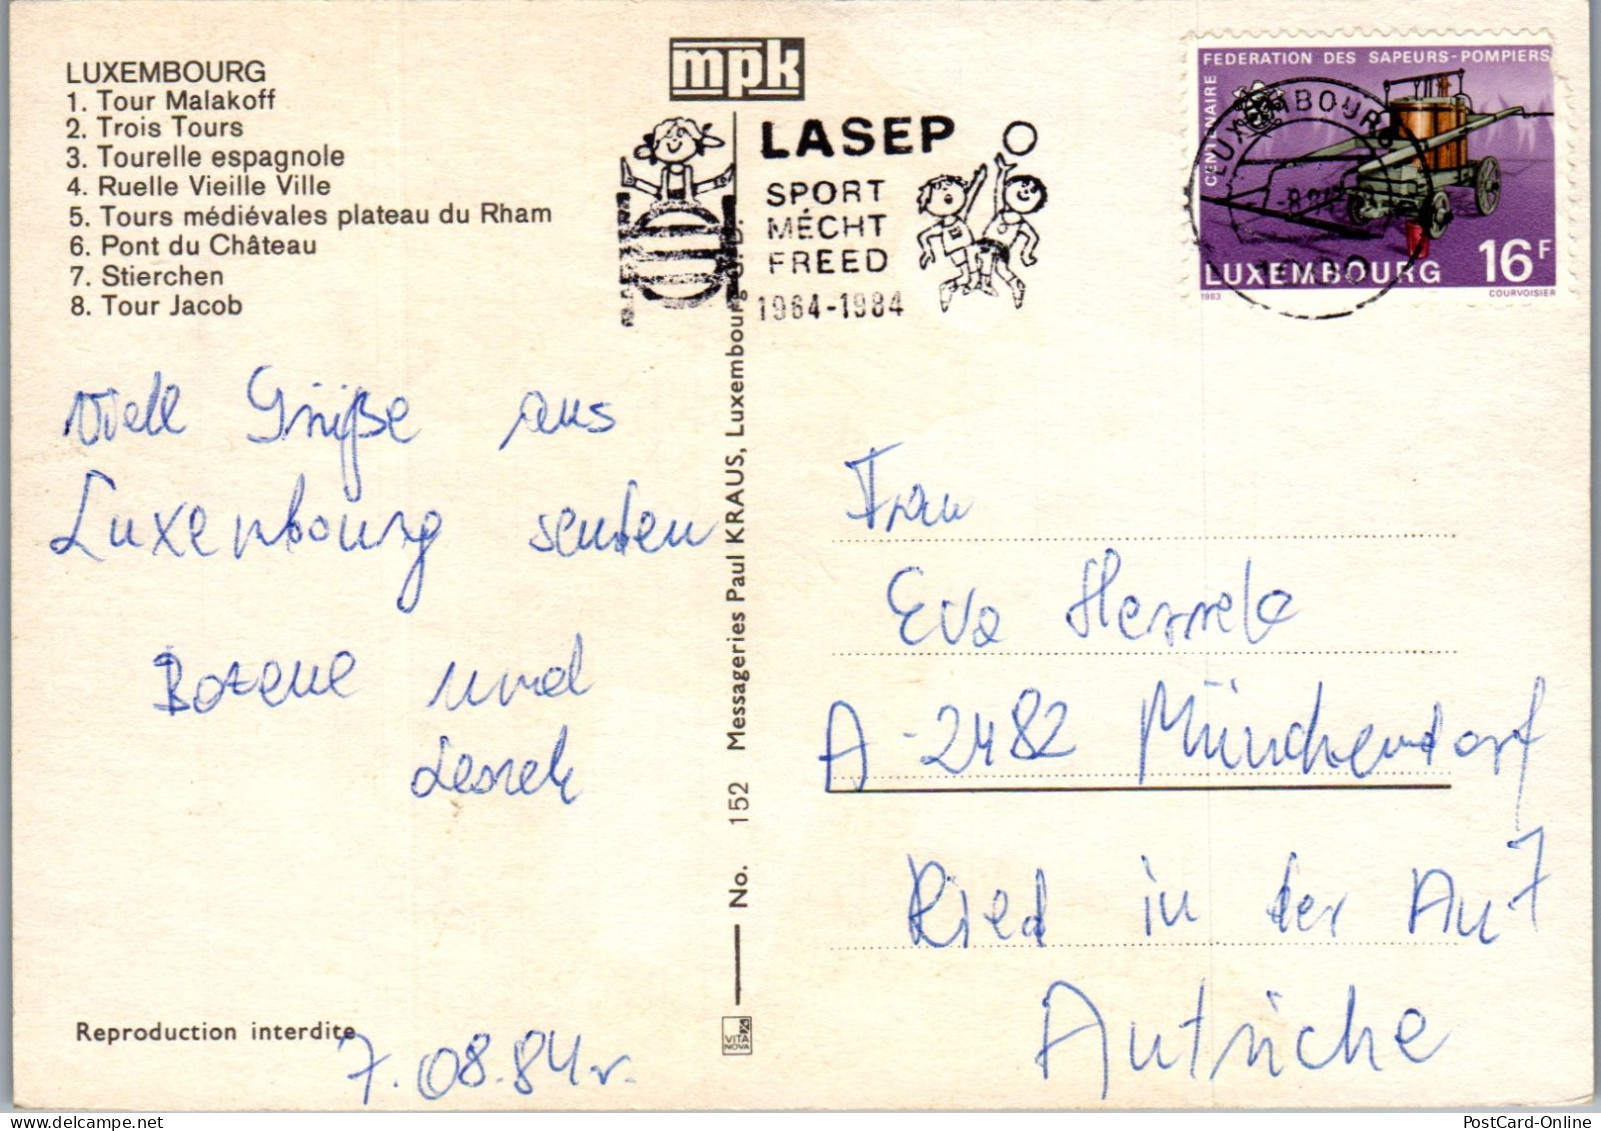 LUXEMBOURG
1. Tour Malakoff
2. Trois Tours
3. Tourelle espagnole
4. Ruelle Vieille Ville
5. Tours médiévales plateau du Rham
6. Pont du Château
7. Stierchen
8. Tour Jacob
mpk
LASEP
SPORT
MÉCHT
FREED
1964-1984
CENTENAIRE FEDERATION DES SAPEURS-POMPIERS
LUXEMBOURG 16F
1983 COURVOISIER
LUXEMBOURG
Viele Grüße aus
Luxembourg senden
Bozena und
Leszek
7.08.84r.
Reproduction interdite
No. 152 Messageries Paul KRAUS, Luxembourg G.D.
VITA
NOVA
Frau
Eva
A-2482 Münchendorf
Ried in der Au 7
Autriche
PostCard-Online